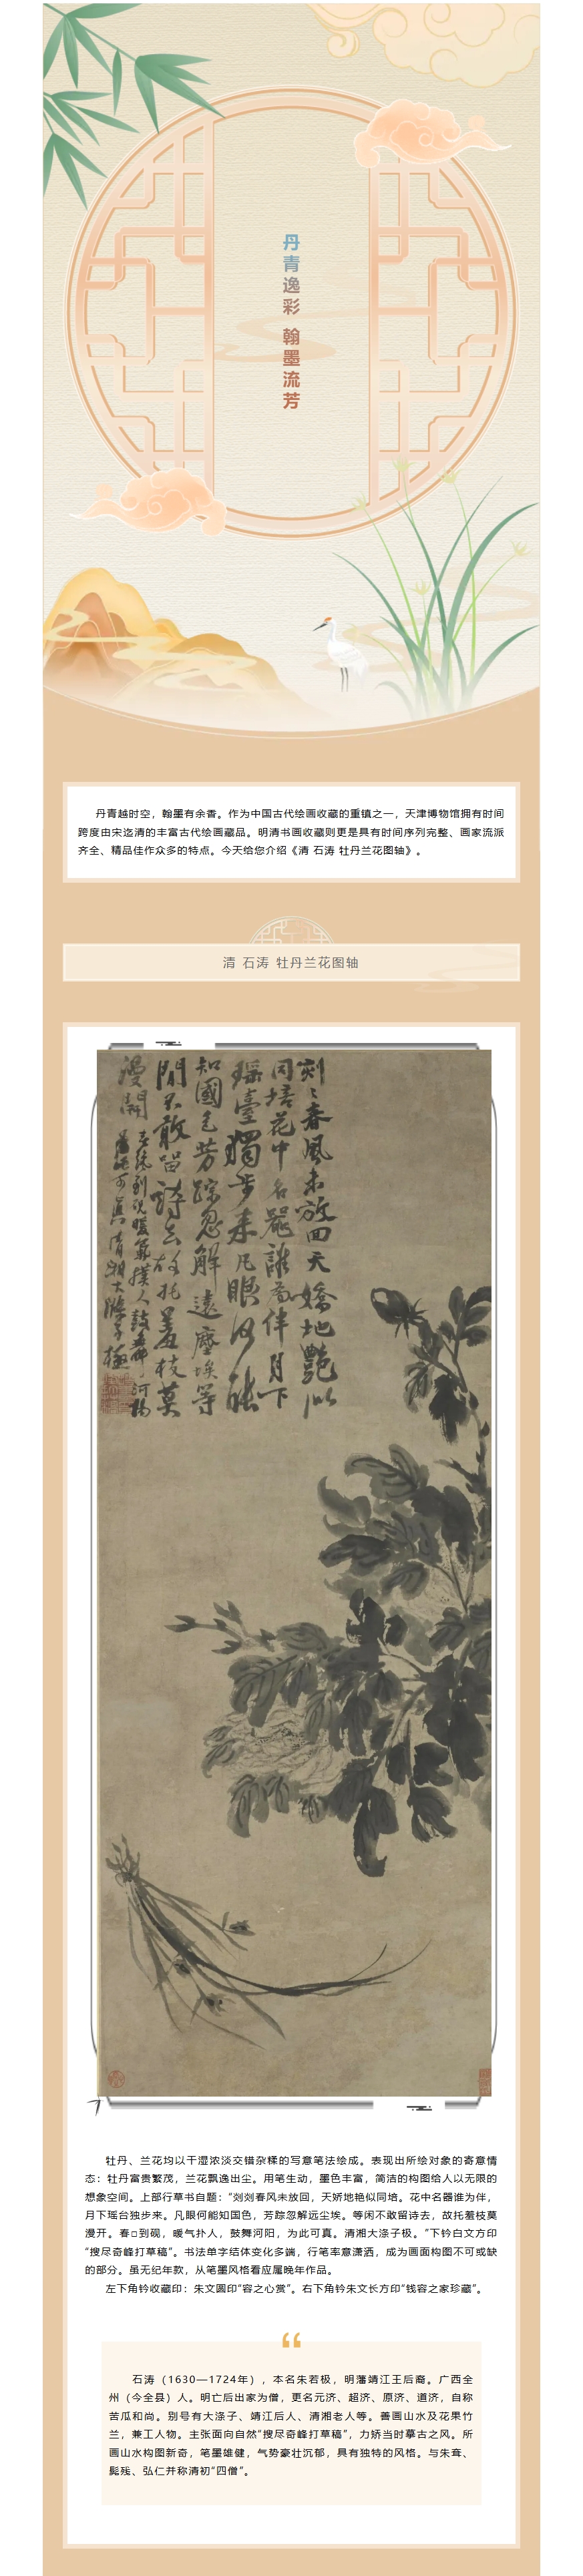 丹青逸彩 翰墨流芳
丹青越时空，翰墨有余香。作为中国古代绘画收藏的重镇之一，天津博物馆拥有时间
跨度由宋迄清的丰富古代绘画藏品。明清书画收藏则更是具有时间序列完整、画家流派
齐全、精品佳作众多的特点。今天给您介绍《清 石涛 牡丹兰花图轴》。
清 石涛 牡丹兰花图轴
剡〻春风未放回天娇地艳似
同培花中名器谁为伴月下
瑶臺獨步来凡眼何能
知國色芳踪忽解遠塵埃等
閒不敢留詩去故托羞枝莫
漫開
牡丹、兰花均以干湿浓淡交错杂糅的写意笔法绘成。表现出所绘对象的寄意情
态：牡丹富贵繁茂，兰花飘逸出尘。用笔生动，墨色丰富，简洁的构图给人以无限的
想象空间。上部行草书自题：“剡剡春风未放回，天娇地艳似同培。花中名器谁为伴，
月下瑶台独步来。凡眼何能知国色，芳踪忽解远尘埃。等闲不敢留诗去，故托羞枝莫
漫开。春□到砚，暖气扑人，鼓舞河阳，为此可真。清湘大涤子极。”下钤白文方印
“搜尽奇峰打草稿”。书法单字结体变化多端，行笔率意潇洒，成为画面构图不可或缺
的部分。虽无纪年款，从笔墨风格看应属晚年作品。
左下角钤收藏印：朱文圆印“容之心赏”。右下角钤朱文长方印“钱容之家珍藏”。
石涛（1630—1724年），本名朱若极，明藩靖江王后裔。广西全
州（今全县）人。明亡后出家为僧，更名元济、超济、原济、道济，自称
苦瓜和尚。别号有大涤子、靖江后人、清湘老人等。善画山水及花果竹
兰，兼工人物。主张面向自然“搜尽奇峰打草稿”，力矫当时摹古之风。所
画山水构图新奇，笔墨雄健，气势豪壮沉郁，具有独特的风格。与朱耷、
髡残、弘仁并称清初“四僧”。